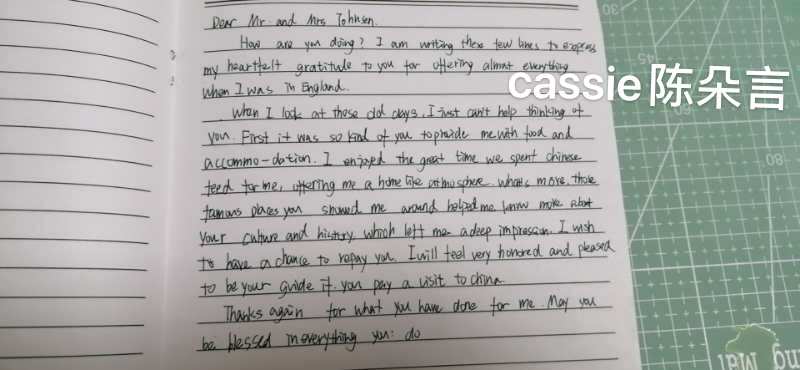 Dear Mr. and Mrs Johnson.
How are you doing? I am writing these few lines to express
my heartfelt gratitude to you for offering almost everything
when I was in England.
When I look at those old days, I just can't help thinking of
you. First it was so kind of you to provide me with food and
accommo-dation. I enjoyed the great time we spent chinese
feed for me, offering me a home like atmosphere. what's more, those
famous places you showed me around helped me know more about
your culture and history, which left me a deep impression. I wish
to have a chance to repay you. I will feel very honored and pleased
to be your guide if you pay a visit to china.
Thanks again for what you have done for me. May you
be blessed in everything you: do
cassie陈朵言
30
45
60
80